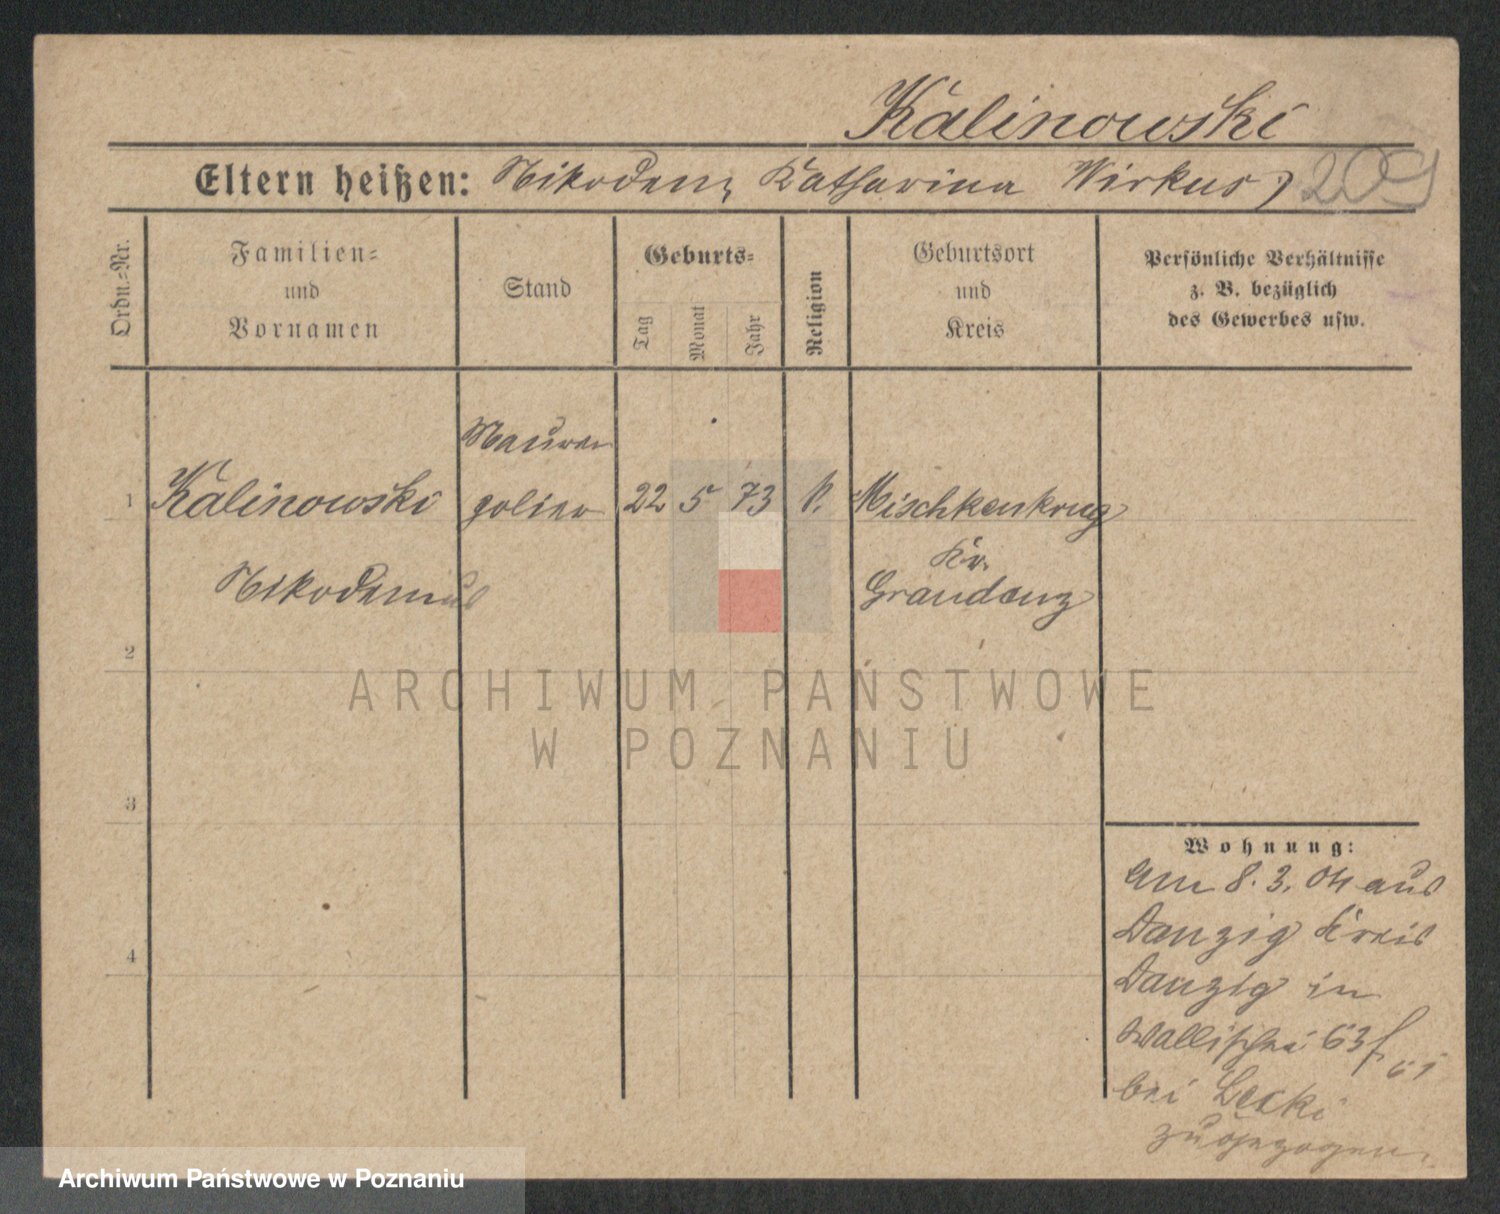 Kalinowski
Eltern heißen: Nikodem, Katharina Wirkus)
209
Ordn.-Nr.
Familien-
und
Vornamen
Stand
Geburts-
Tag
Monat
Jahr
Religion
Geburtsort
und
Kreis
Persönliche Verhältnisse
z. B. bezüglich
des Gewerbes usw.
Maurer
1 Kalinowski polier 22 5 73 k. Mischkenkrug
Kr.
Nikodemus Graudenz
2
ARCHIWUM PAŃSTWOWE
W POZNANIU
3
Wohnung:
Am 8. 3. 04 aus
Danzig Kreis
4
Danzig in
Wallischei 63
bei
zugezogen.
Archiwum Państwowe w Poznaniu